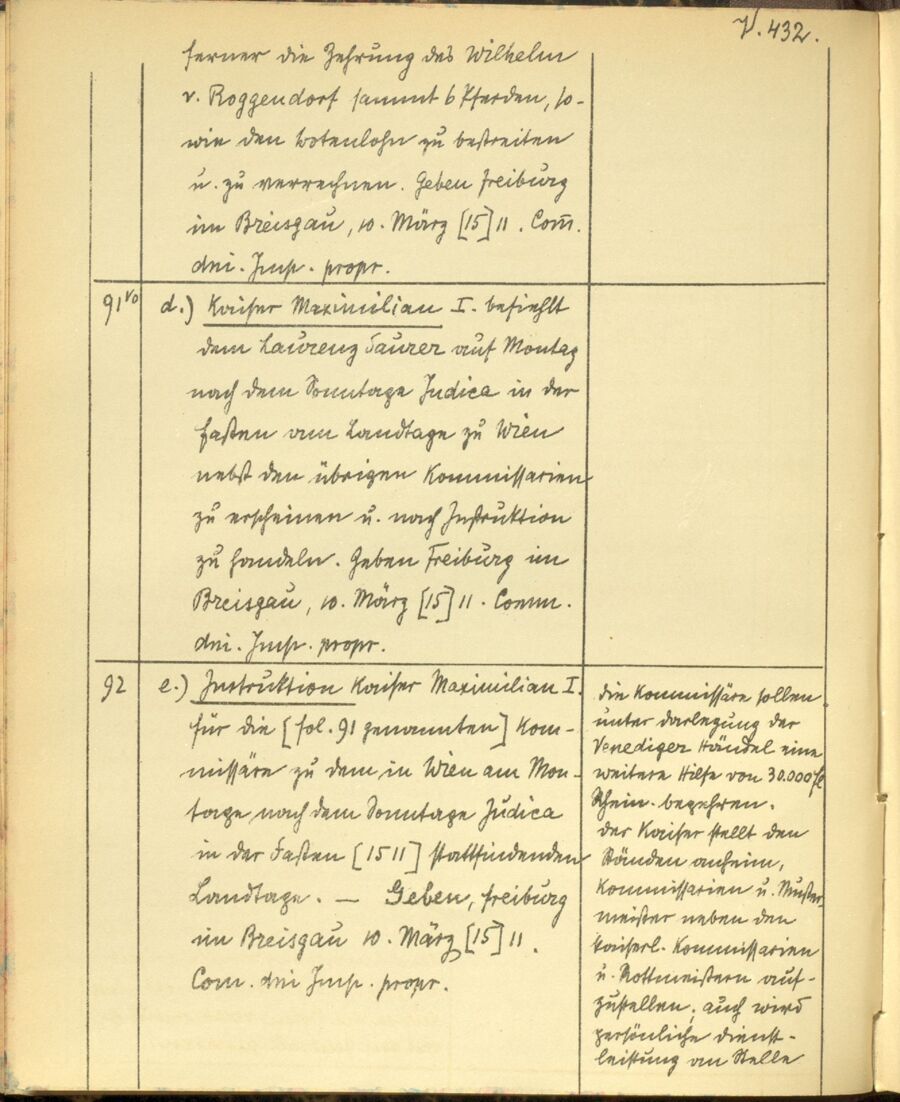 V. 432.
ferner die Zehrung des Wilhelm
v. Roggendorf sammt 6 Pferden, so-
wie den Botenlohn zu bestreiten
u. zu verrechnen. Geben Freiburg
im Breisgau, 10. März [15]11. Com̄.
dni. Imp. propr.
91vo
d.) Kaiser Maximilian I. befiehlt
dem Laurenz Saurer auf Montag
nach dem Sonntage Judica in der
Fasten am Landtage zu Wien
nebst den übrigen Kommissarien
zu erscheinen u. nach Instruktion
zu handeln. Geben Freiburg im
Breisgau, 10. März [15]11. Comm.
dni. Imp. propr.
92
e.) Instruktion Kaiser Maximilian I.
für die [fol. 91 genannten] Kom-
missäre zu dem in Wien am Mon-
tage nach dem Sonntage Judica
in der Fasten [1511] stattfindenden
Landtage. — Geben, Freiburg
im Breisgau 10. März [15]11.
Com. dni Imp. propr.
die Kommissäre sollen
unter Darlegung der
Venediger Händel eine
weitere Hilfe von 30.000 fl
Rhein. begehren.
der Kaiser stellt den
Ständen anheim,
Kommissarien u. Muster-
meister neben den
kaiserl. Kommissarien
u. Rottmeistern auf-
zustellen; auch wird
persönliche Dienst-
leistung an Stelle